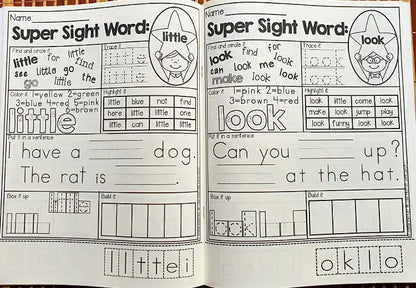 Name
Super Sight Word:
little
Find and circle it
little for little
find
see little go
go little the
Trace it
little
little
Color it 1=yellow 2=green
3=blue 4=red 5=pink
6=brown
little
Highlight it
little blue not find
here little little one
little can little little
Put it in a sentence
I have a ______ dog.
The rat is ______.
Box it up
little
Build it
l l t t e i
Name
Super Sight Word:
look
Find and circle it
look find for
look
can look me look
make look go
Trace it
look
look
Color it 1=pink 2=blue
3=brown 4=red
look
Highlight it
look little come look
make look jump play
look funny look look
Put it in a sentence
Can you ______ up?
______ at the hat.
Box it up
look
Build it
o k l o